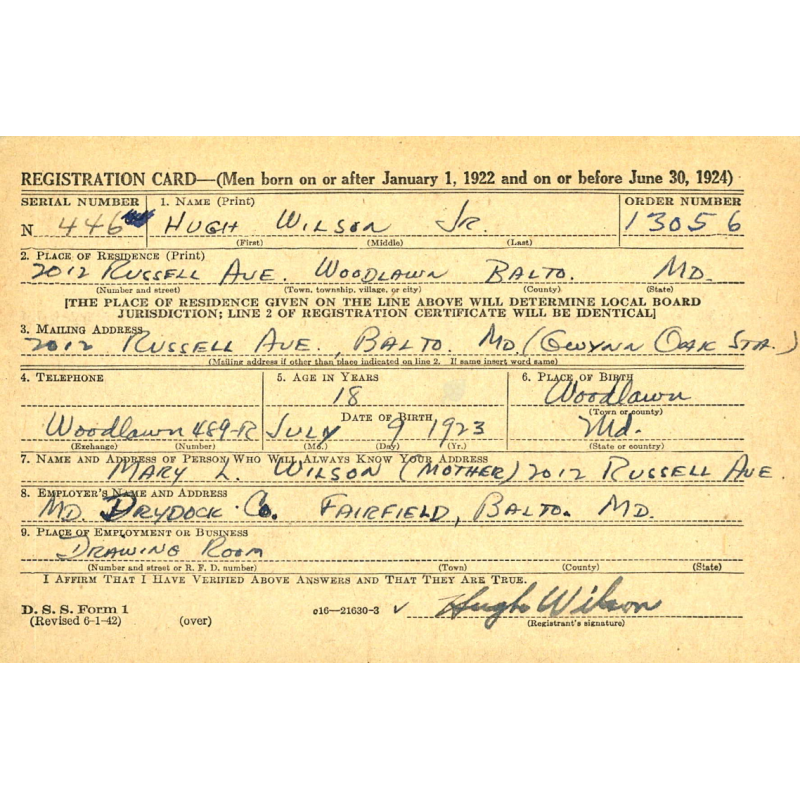 REGISTRATION CARD—(Men born on or after January 1, 1922 and on or before June 30, 1924)
SERIAL NUMBER 1. NAME (Print) ORDER NUMBER
N 446 HUGH WILSON JR. 13056
(First) (Middle) (Last)
2. PLACE OF RESIDENCE (Print)
2012 RUSSELL AVE. WOODLAWN BALTO. MD.
(Number and street) (Town, township, village, or city) (County) (State)
[THE PLACE OF RESIDENCE GIVEN ON THE LINE ABOVE WILL DETERMINE LOCAL BOARD
JURISDICTION; LINE 2 OF REGISTRATION CERTIFICATE WILL BE IDENTICAL]
3. MAILING ADDRESS
2012 RUSSELL AVE. BALTO. MD. (GWYNN OAK STA.)
(Mailing address if other than place indicated on line 2. If same insert word same)
4. TELEPHONE 5. AGE IN YEARS 6. PLACE OF BIRTH
18 Woodlawn
(Town or county)
DATE OF BIRTH
Woodlawn 489-R JULY 9 1923 Md.
(Exchange) (Number) (Mo.) (Day) (Yr.) (State or country)
7. NAME AND ADDRESS OF PERSON WHO WILL ALWAYS KNOW YOUR ADDRESS
MARY L. WILSON (MOTHER) 2012 RUSSELL AVE.
8. EMPLOYER'S NAME AND ADDRESS
MD. DRYDOCK CO. FAIRFIELD, BALTO. MD.
9. PLACE OF EMPLOYMENT OR BUSINESS
DRAWING ROOM
(Number and street or R. F. D. number) (Town) (County) (State)
I AFFIRM THAT I HAVE VERIFIED ABOVE ANSWERS AND THAT THEY ARE TRUE.
D. S. S. Form 1 c16—21630-3 Hugh Wilson
(Revised 6-1-42) (over) (Registrant's signature)